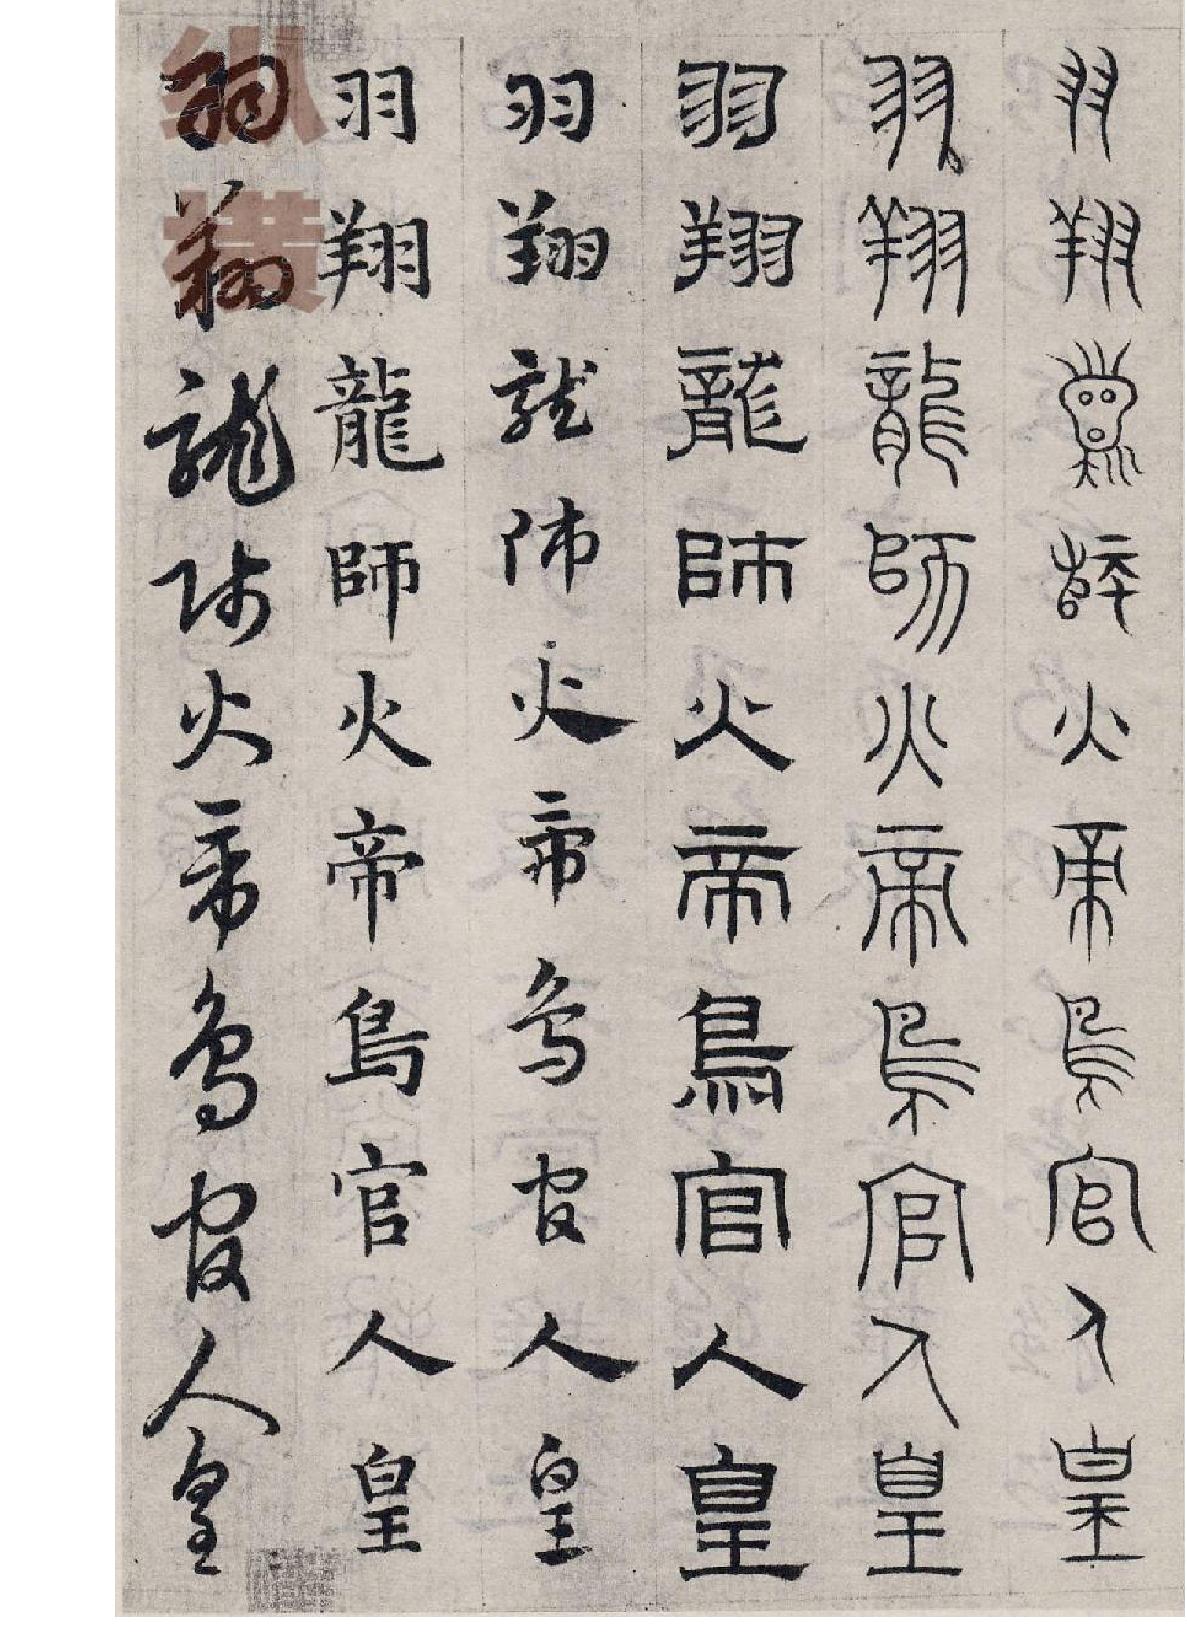 羽翔龍師火帝鳥官人皇
羽翔龍師火帝鳥官人皇
羽翔龍師火帝鳥官人皇
羽翔龍師火帝鳥官人皇
羽翔龍師火帝鳥官人皇
羽翔龍師火帝鳥官人皇
纵横